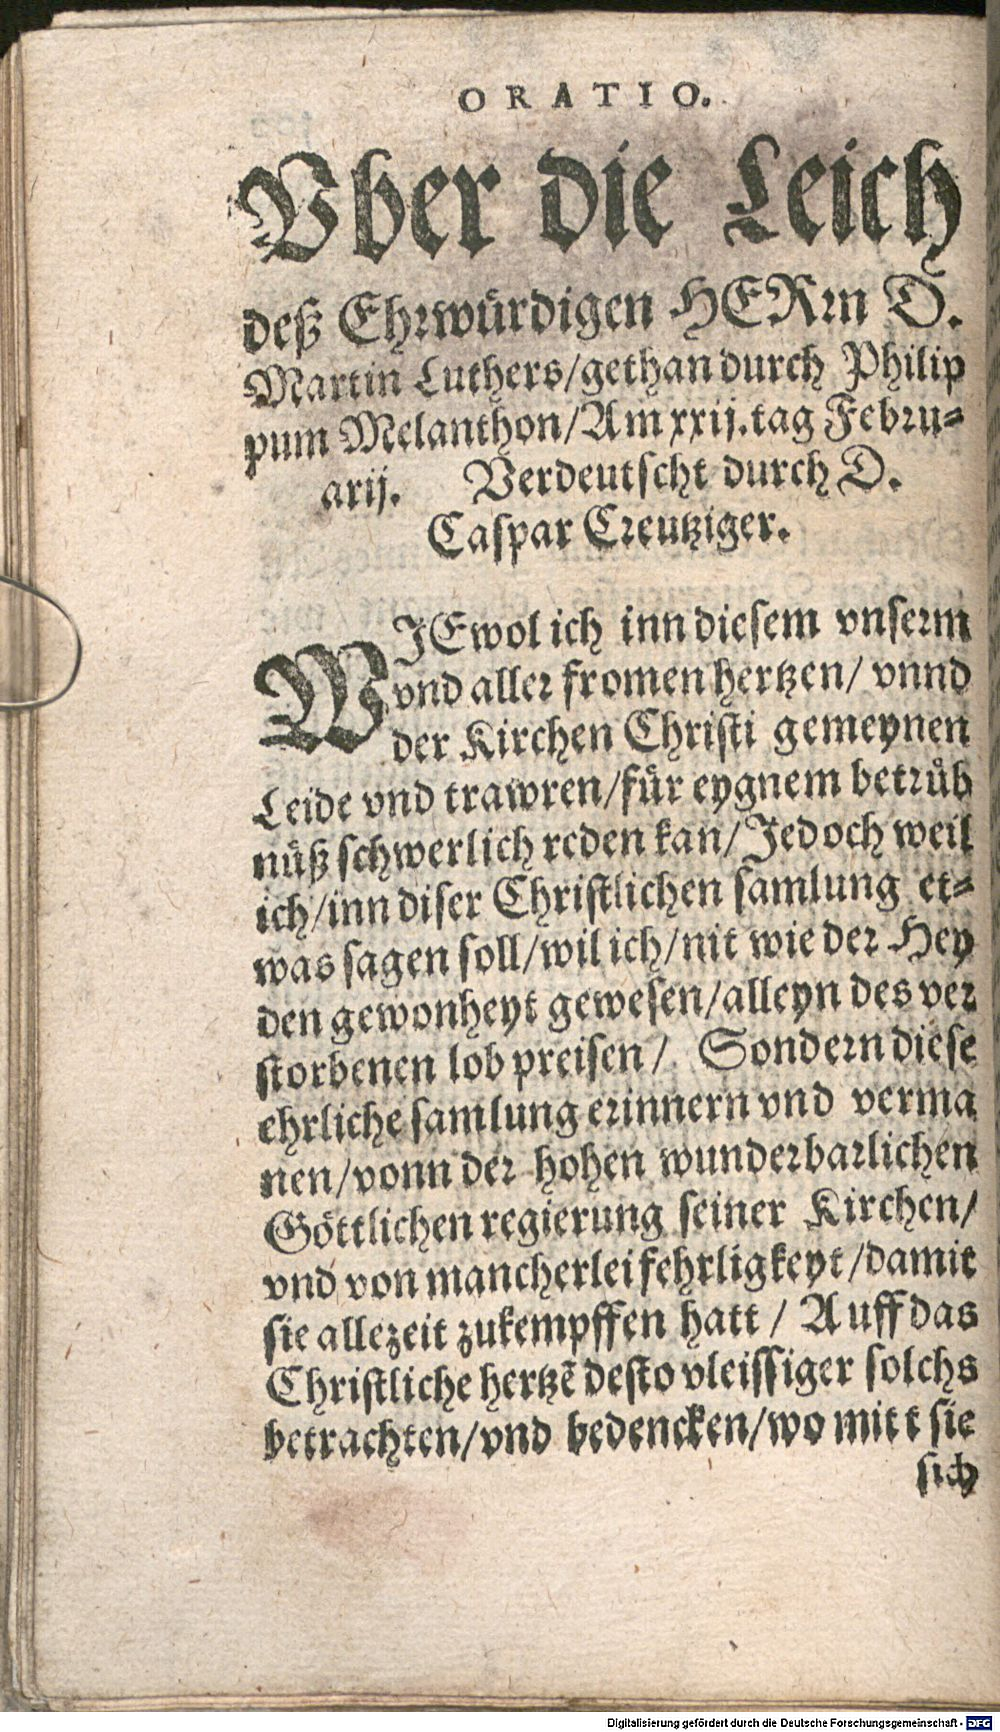 ORATIO.
Vber die Leich
deß Ehrwürdigen HERrn D.
Martin Luthers/gethan durch Philip
pum Melanthon/Am xxij.tag Febru-
arij. Verdeutscht durch D.
Caspar Creutziger.
WIEwol ich inn diesem vnserm
vnd aller fromen hertzen/ vnnd
der Kirchen Christi gemeynen
Leide vnd trawren/für eygnem betrüb
nüß schwerlich reden kan/Jedoch weil
ich/inn diser Christlichen samlung et-
was sagen soll/wil ich/nit wie der Hey
den gewonheyt gewesen/alleyn des ver
storbenen lob preisen/ Sondern diese
ehrliche samlung erinnern vnd verma
nen/vonn der hohen wunderbarlichen
Göttlichen regierung seiner Kirchen/
vnd von mancherlei fehrligkeyt/damit
sie allezeit zukempffen hatt / Auff das
Christliche hertzẽ desto vleissiger solchs
betrachten/vnd bedencken/wo mitt sie
sich
Digitalisierung gefördert durch die Deutsche Forschungsgemeinschaft - DFG